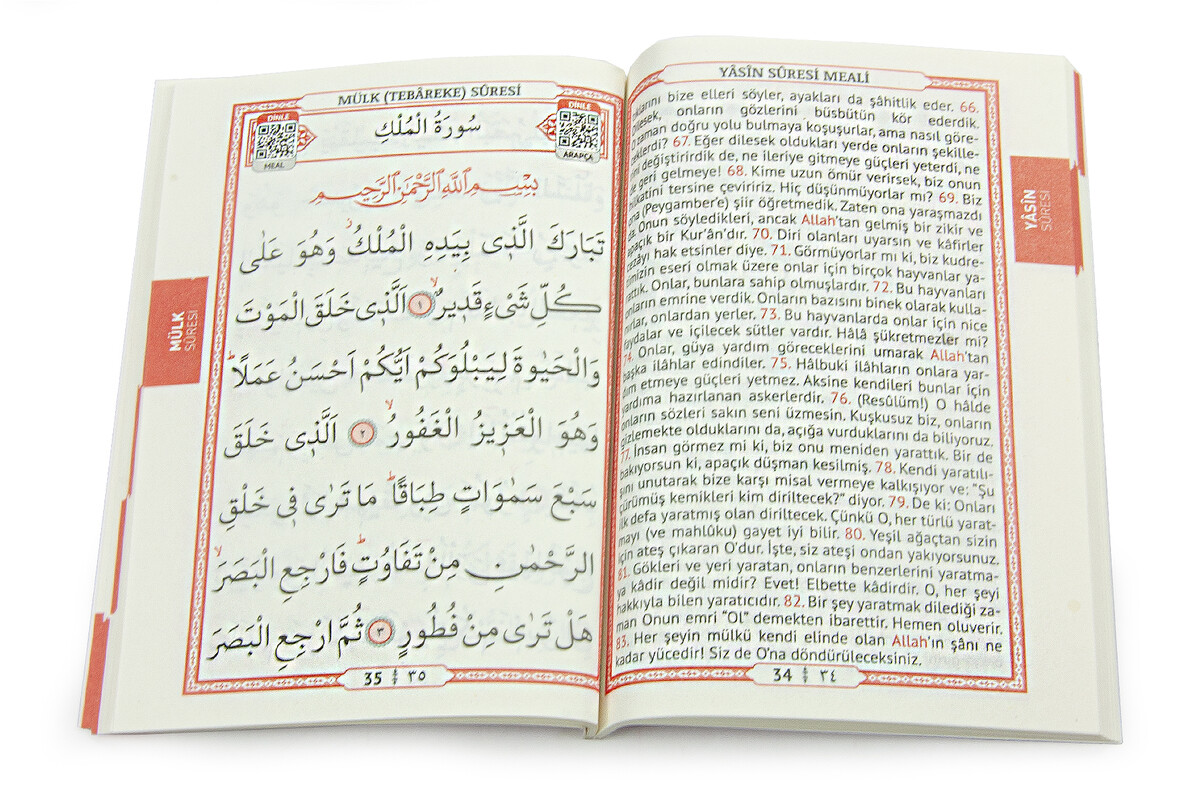 YÂSÎN SÛRESİ MEALİ
bize elleri söyler, ayakları da şâhitlik eder. 66.
dilesek, onların gözlerini büsbütün kör ederdik.
zaman doğru yolu bulmaya koşuşurlar, ama nasıl göre-
ceklerdi? 67. Eğer dilesek oldukları yerde onların şekille-
rini değiştirirdik de, ne ileriye gitmeye güçleri yeterdi, ne
de geri gelmeye! 68. Kime uzun ömür verirsek, biz onun
hilkatini tersine çeviririz. Hiç düşünmüyorlar mı? 69. Biz
ona (Peygamber'e) şiir öğretmedik. Zaten ona yaraşmazdı
da. Onun söyledikleri, ancak Allah'tan gelmiş bir zikir ve
apaçık bir Kur'ân'dır. 70. Diri olanları uyarsın ve kâfirler
cezâyı hak etsinler diye. 71. Görmüyorlar mı ki, biz kudre-
timizin eseri olmak üzere onlar için birçok hayvanlar ya-
rattık. Onlar, bunlara sahip olmuşlardır. 72. Bu hayvanları
onların emrine verdik. Onların bazısını binek olarak kulla-
nırlar, onlardan yerler. 73. Bu hayvanlarda onlar için nice
faydalar ve içilecek sütler vardır. Hâlâ şükretmezler mi?
74. Onlar, güya yardım göreceklerini umarak Allah'tan
başka ilâhlar edindiler. 75. Hâlbuki ilâhların onlara yar-
dım etmeye güçleri yetmez. Aksine kendileri bunlar için
yardıma hazırlanan askerlerdir. 76. (Resûlüm!) O hâlde
onların sözleri sakın seni üzmesin. Kuşkusuz biz, onların
gizlemekte olduklarını da, açığa vurduklarını da biliyoruz.
77. İnsan görmez mi ki, biz onu meniden yarattık. Bir de
bakıyorsun ki, apaçık düşman kesilmiş. 78. Kendi yaratılı-
şını unutarak bize karşı misal vermeye kalkışıyor ve: "Şu
çürümüş kemikleri kim diriltecek?" diyor. 79. De ki: Onları
ilk defa yaratmış olan diriltecek. Çünkü O, her türlü yarat-
mayı (ve mahlûku) gayet iyi bilir. 80. Yeşil ağaçtan sizin
için ateş çıkaran O'dur. İşte, siz ateşi ondan yakıyorsunuz.
81. Gökleri ve yeri yaratan, onların benzerlerini yaratma-
ya kâdir değil midir? Evet! Elbette kâdirdir. O, her şeyi
hakkıyla bilen yaratıcıdır. 82. Bir şey yaratmak dilediği za-
man Onun emri "Ol" demekten ibarettir. Hemen oluverir.
83. Her şeyin mülkü kendi elinde olan Allah'ın şânı ne
kadar yücedir! Siz de O'na döndürüleceksiniz.
34 ٣٤
YÂSÎN
SÛRESİ
MÜLK (TEBÂREKE) SÛRESİ
DİNLE
MEAL
سُورَةُ الْمُلْكِ
DİNLE
ARAPÇA
بِسْمِ اللّٰهِ الرَّحْمٰنِ الرَّحِيمِ
تَبَارَكَ الَّذٖى بِيَدِهِ الْمُلْكُۘ وَهُوَ عَلٰى
كُلِّ شَىْءٍ قَدٖيرٌۙ ١ اَلَّذٖى خَلَقَ الْمَوْتَ
وَالْحَيٰوةَ لِيَبْلُوَكُمْ اَيُّكُمْ اَحْسَنُ عَمَلًاۜ
وَهُوَ الْعَزٖيزُ الْغَفُورُۙ ٢ اَلَّذٖى خَلَقَ
سَبْعَ سَمٰوَاتٍ طِبَاقًاۜ مَا تَرٰى فٖى خَلْقِ
الرَّحْمٰنِ مِنْ تَفَاوُتٍۜ فَارْجِعِ الْبَصَرَۙ
هَلْ تَرٰى مِنْ فُطُورٍ ٣ ثُمَّ ارْجِعِ الْبَصَرَ
35 ٣٥
MÜLK
SÛRESİ